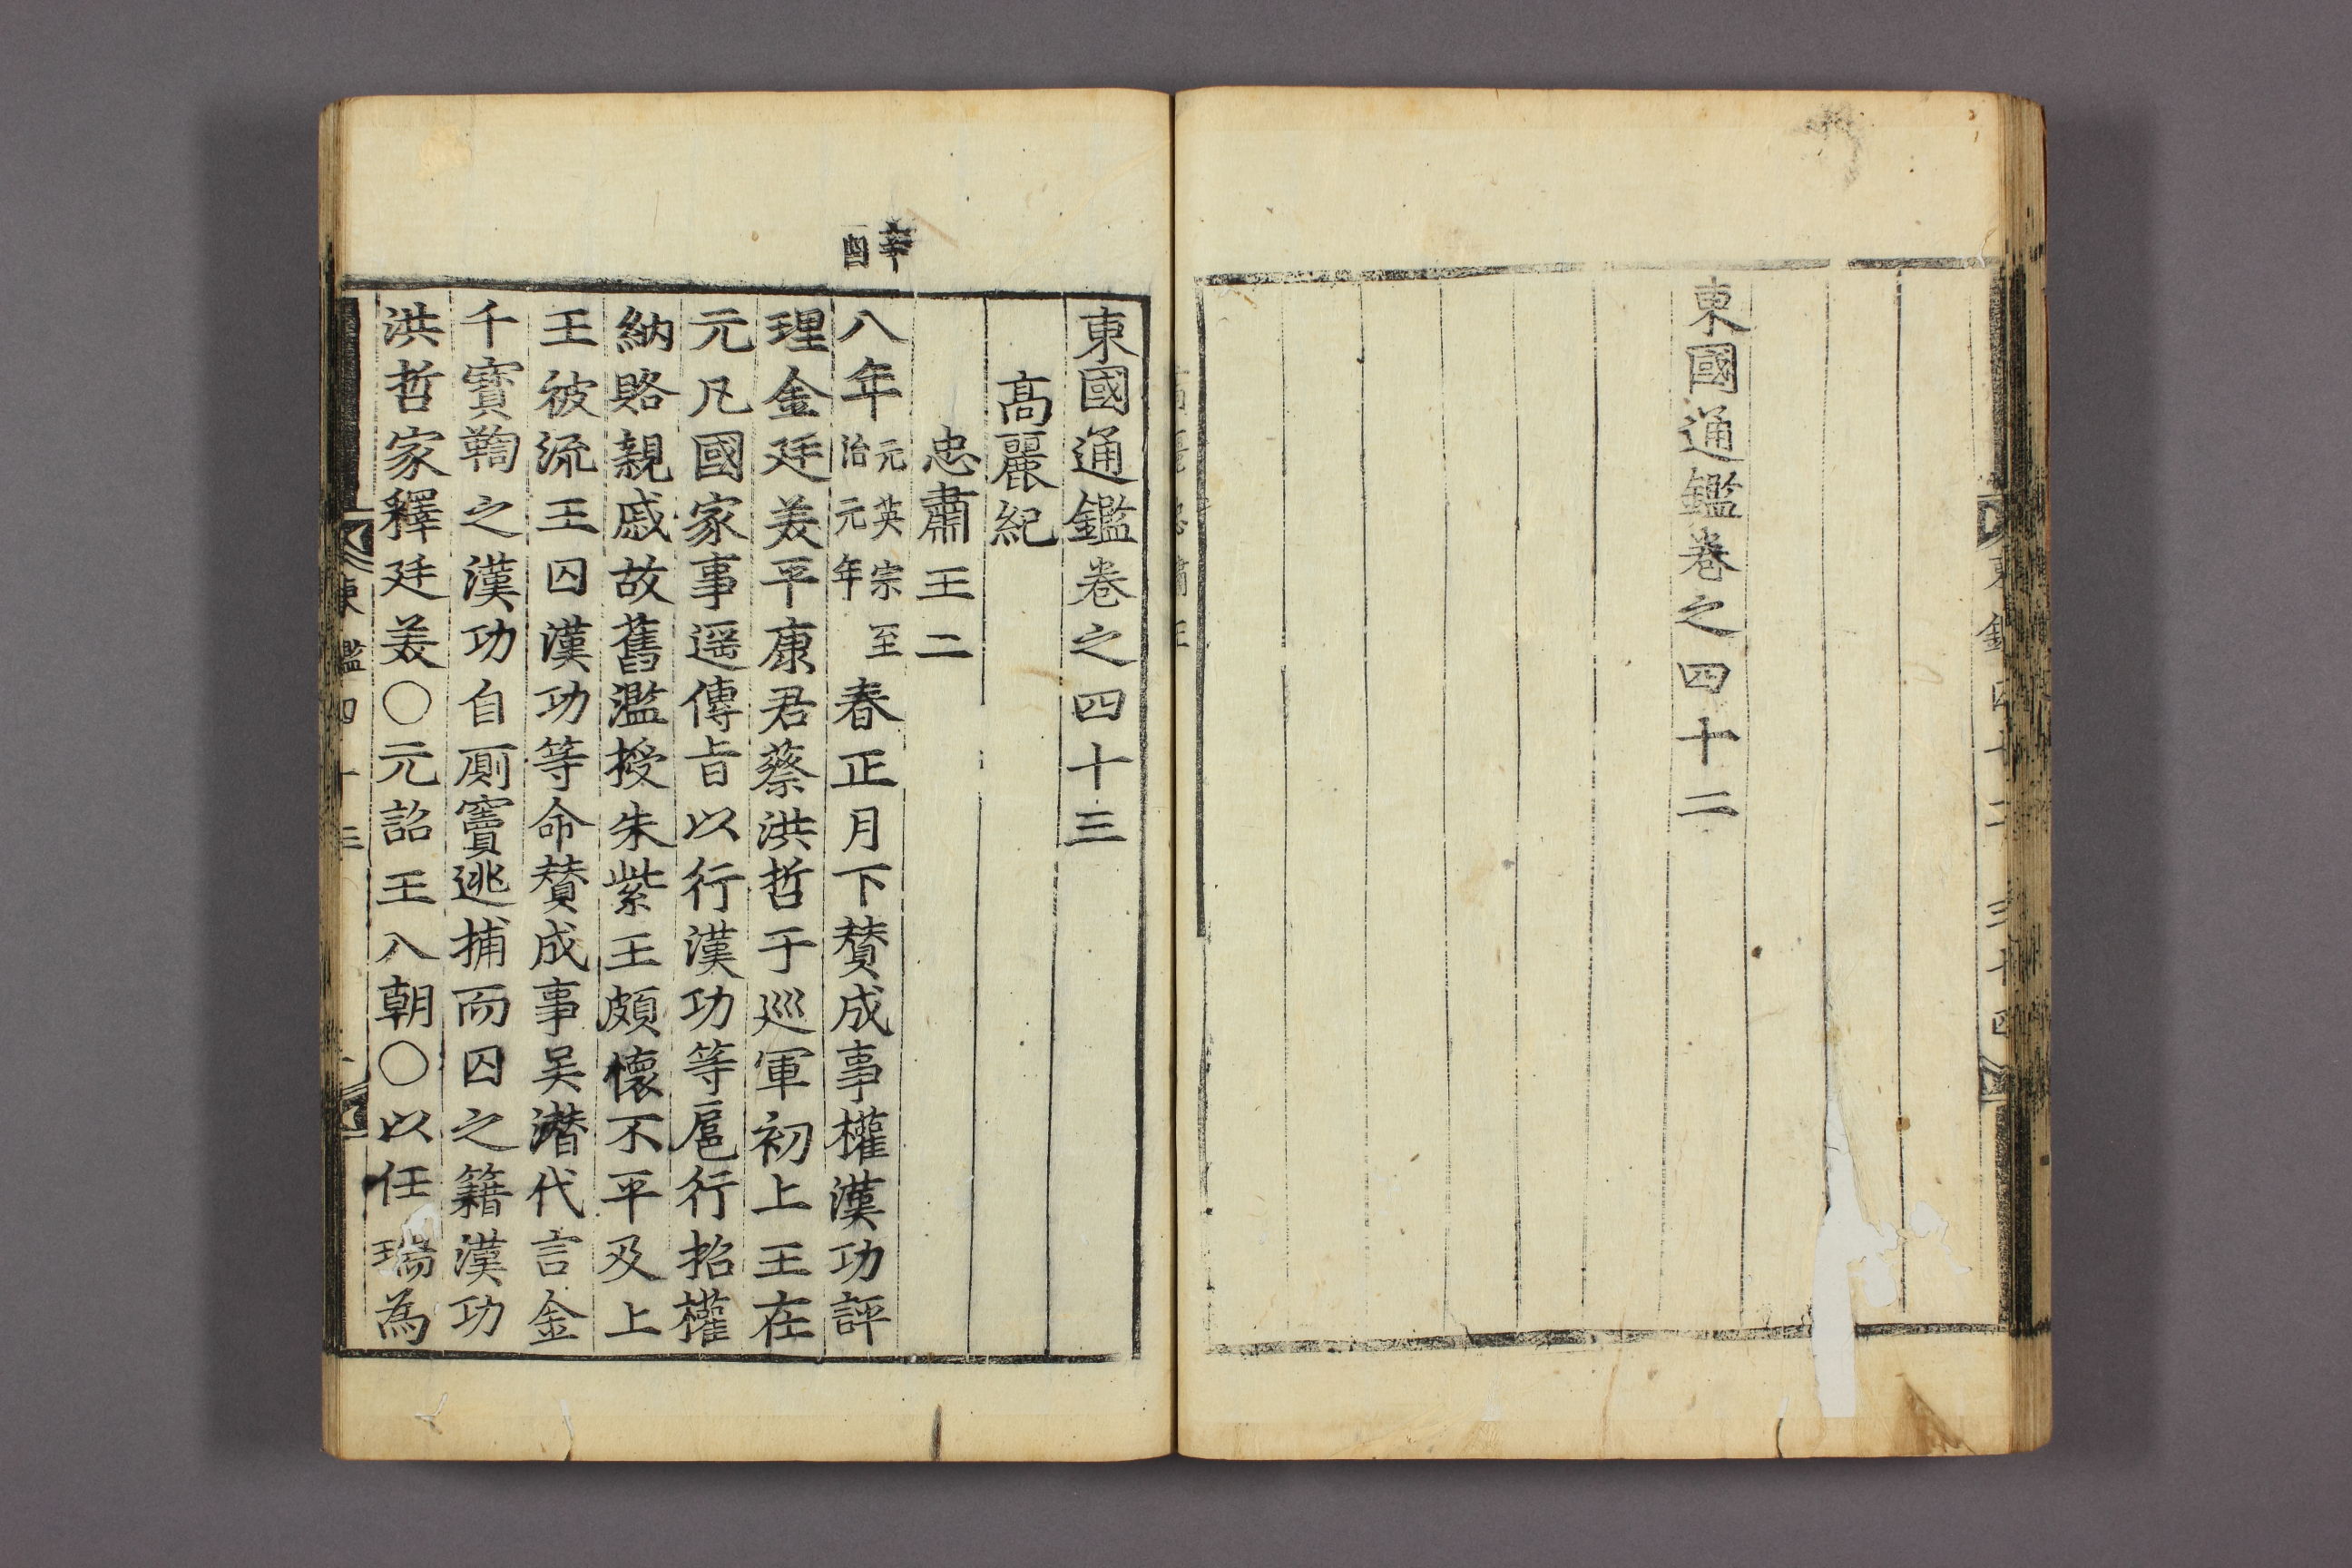 東國通鑑卷之四十二
東國通鑑卷之四十三
高麗紀
忠肅王二
辛酉
八年元英宗至治元年春正月下賛成事權漢功評
理金廷美平康君蔡洪哲于巡軍初上王在
元凡國家事遥傳旨以行漢功等扈行招權
納賂親戚故舊濫授朱紫王頗懷不平及上
王被流王囚漢功等命賛成事吴潜代言金
千寶鞫之漢功自厠竇逃捕而囚之籍漢功
洪哲家釋廷美〇元詔王入朝〇以任瑞為